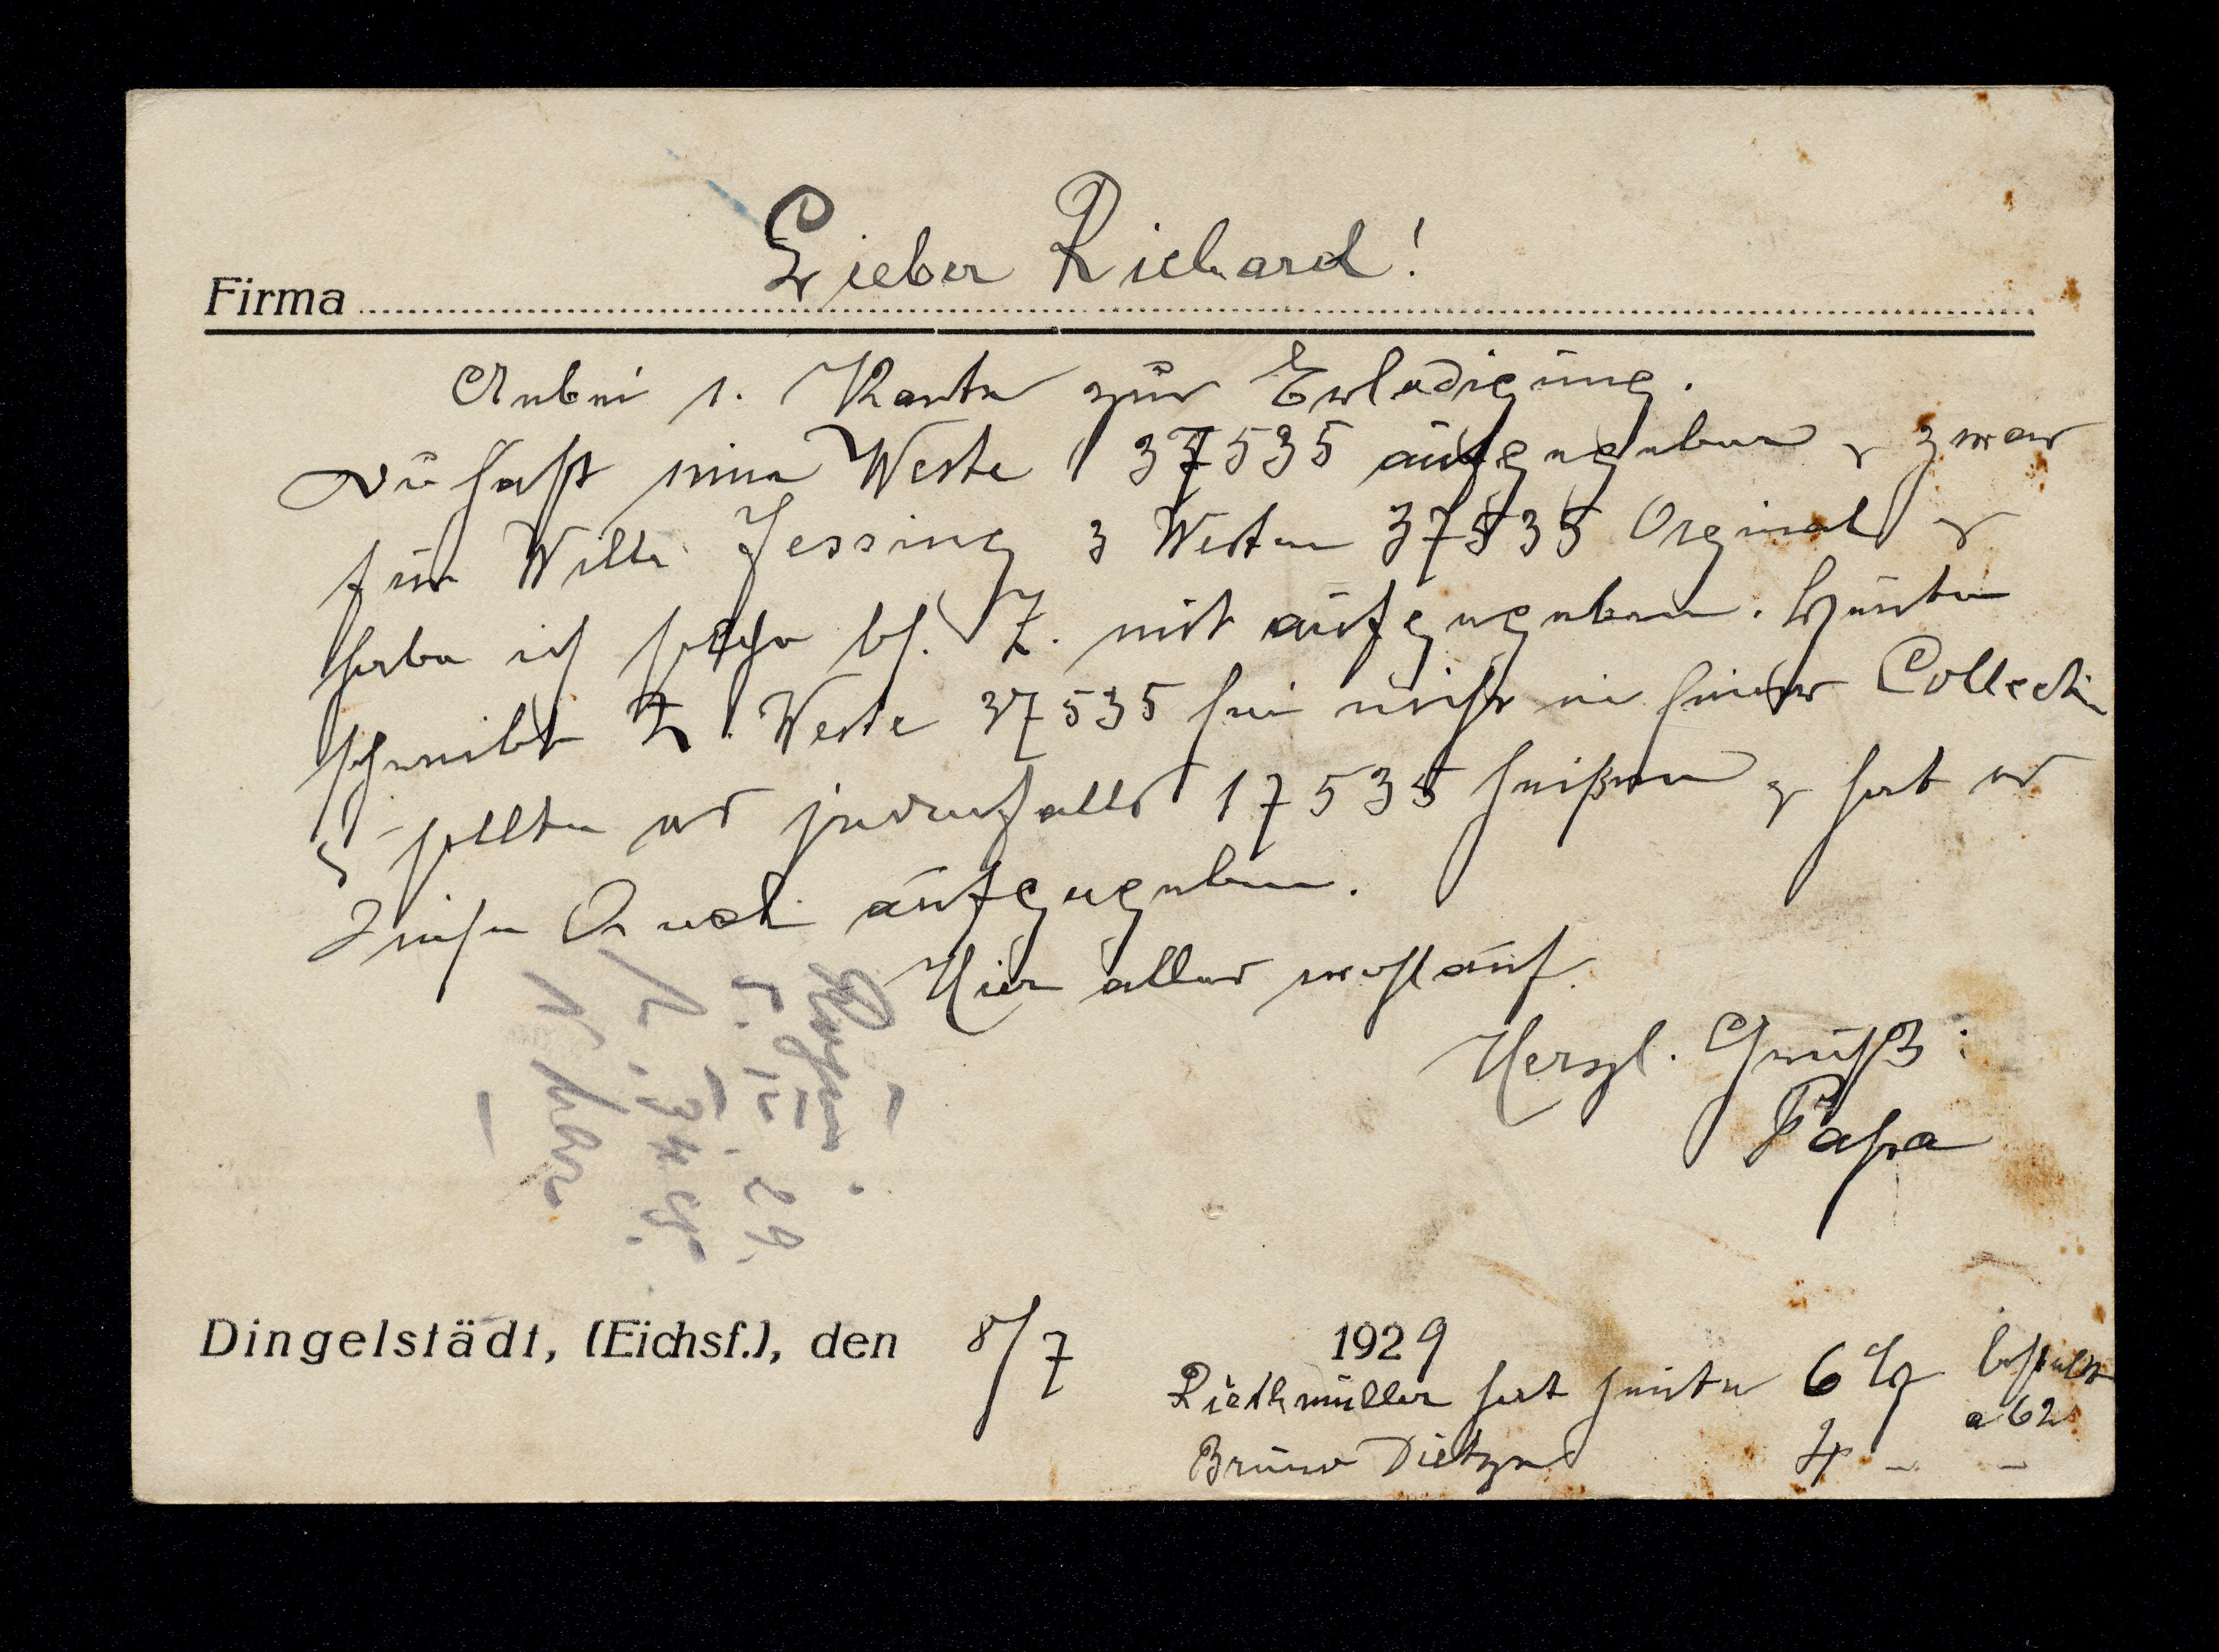 Lieber Richard!
Firma
Anbei 1. Karte zur Erledigung.
Du hast eine Weste 37535 aufgegeben & zwar
für Willi Jessing 3 Westen 37535 Orginal &
habe ich solche bf. Z. mit aufgegeben. Heute
schreibt Z. Weste 37535 sei nicht in seiner Collection
& sollte es jedenfalls 17535 heißen & hat er
diese auch aufgegeben.
Hier alles wohlauf.
Herzl. Gruß:
Papa
Dingelstädt, (Eichsf.), den 8/7 1929
Riethmüller hat heute 6 bestellt
a 62
Bruno Dietzel 4 - -